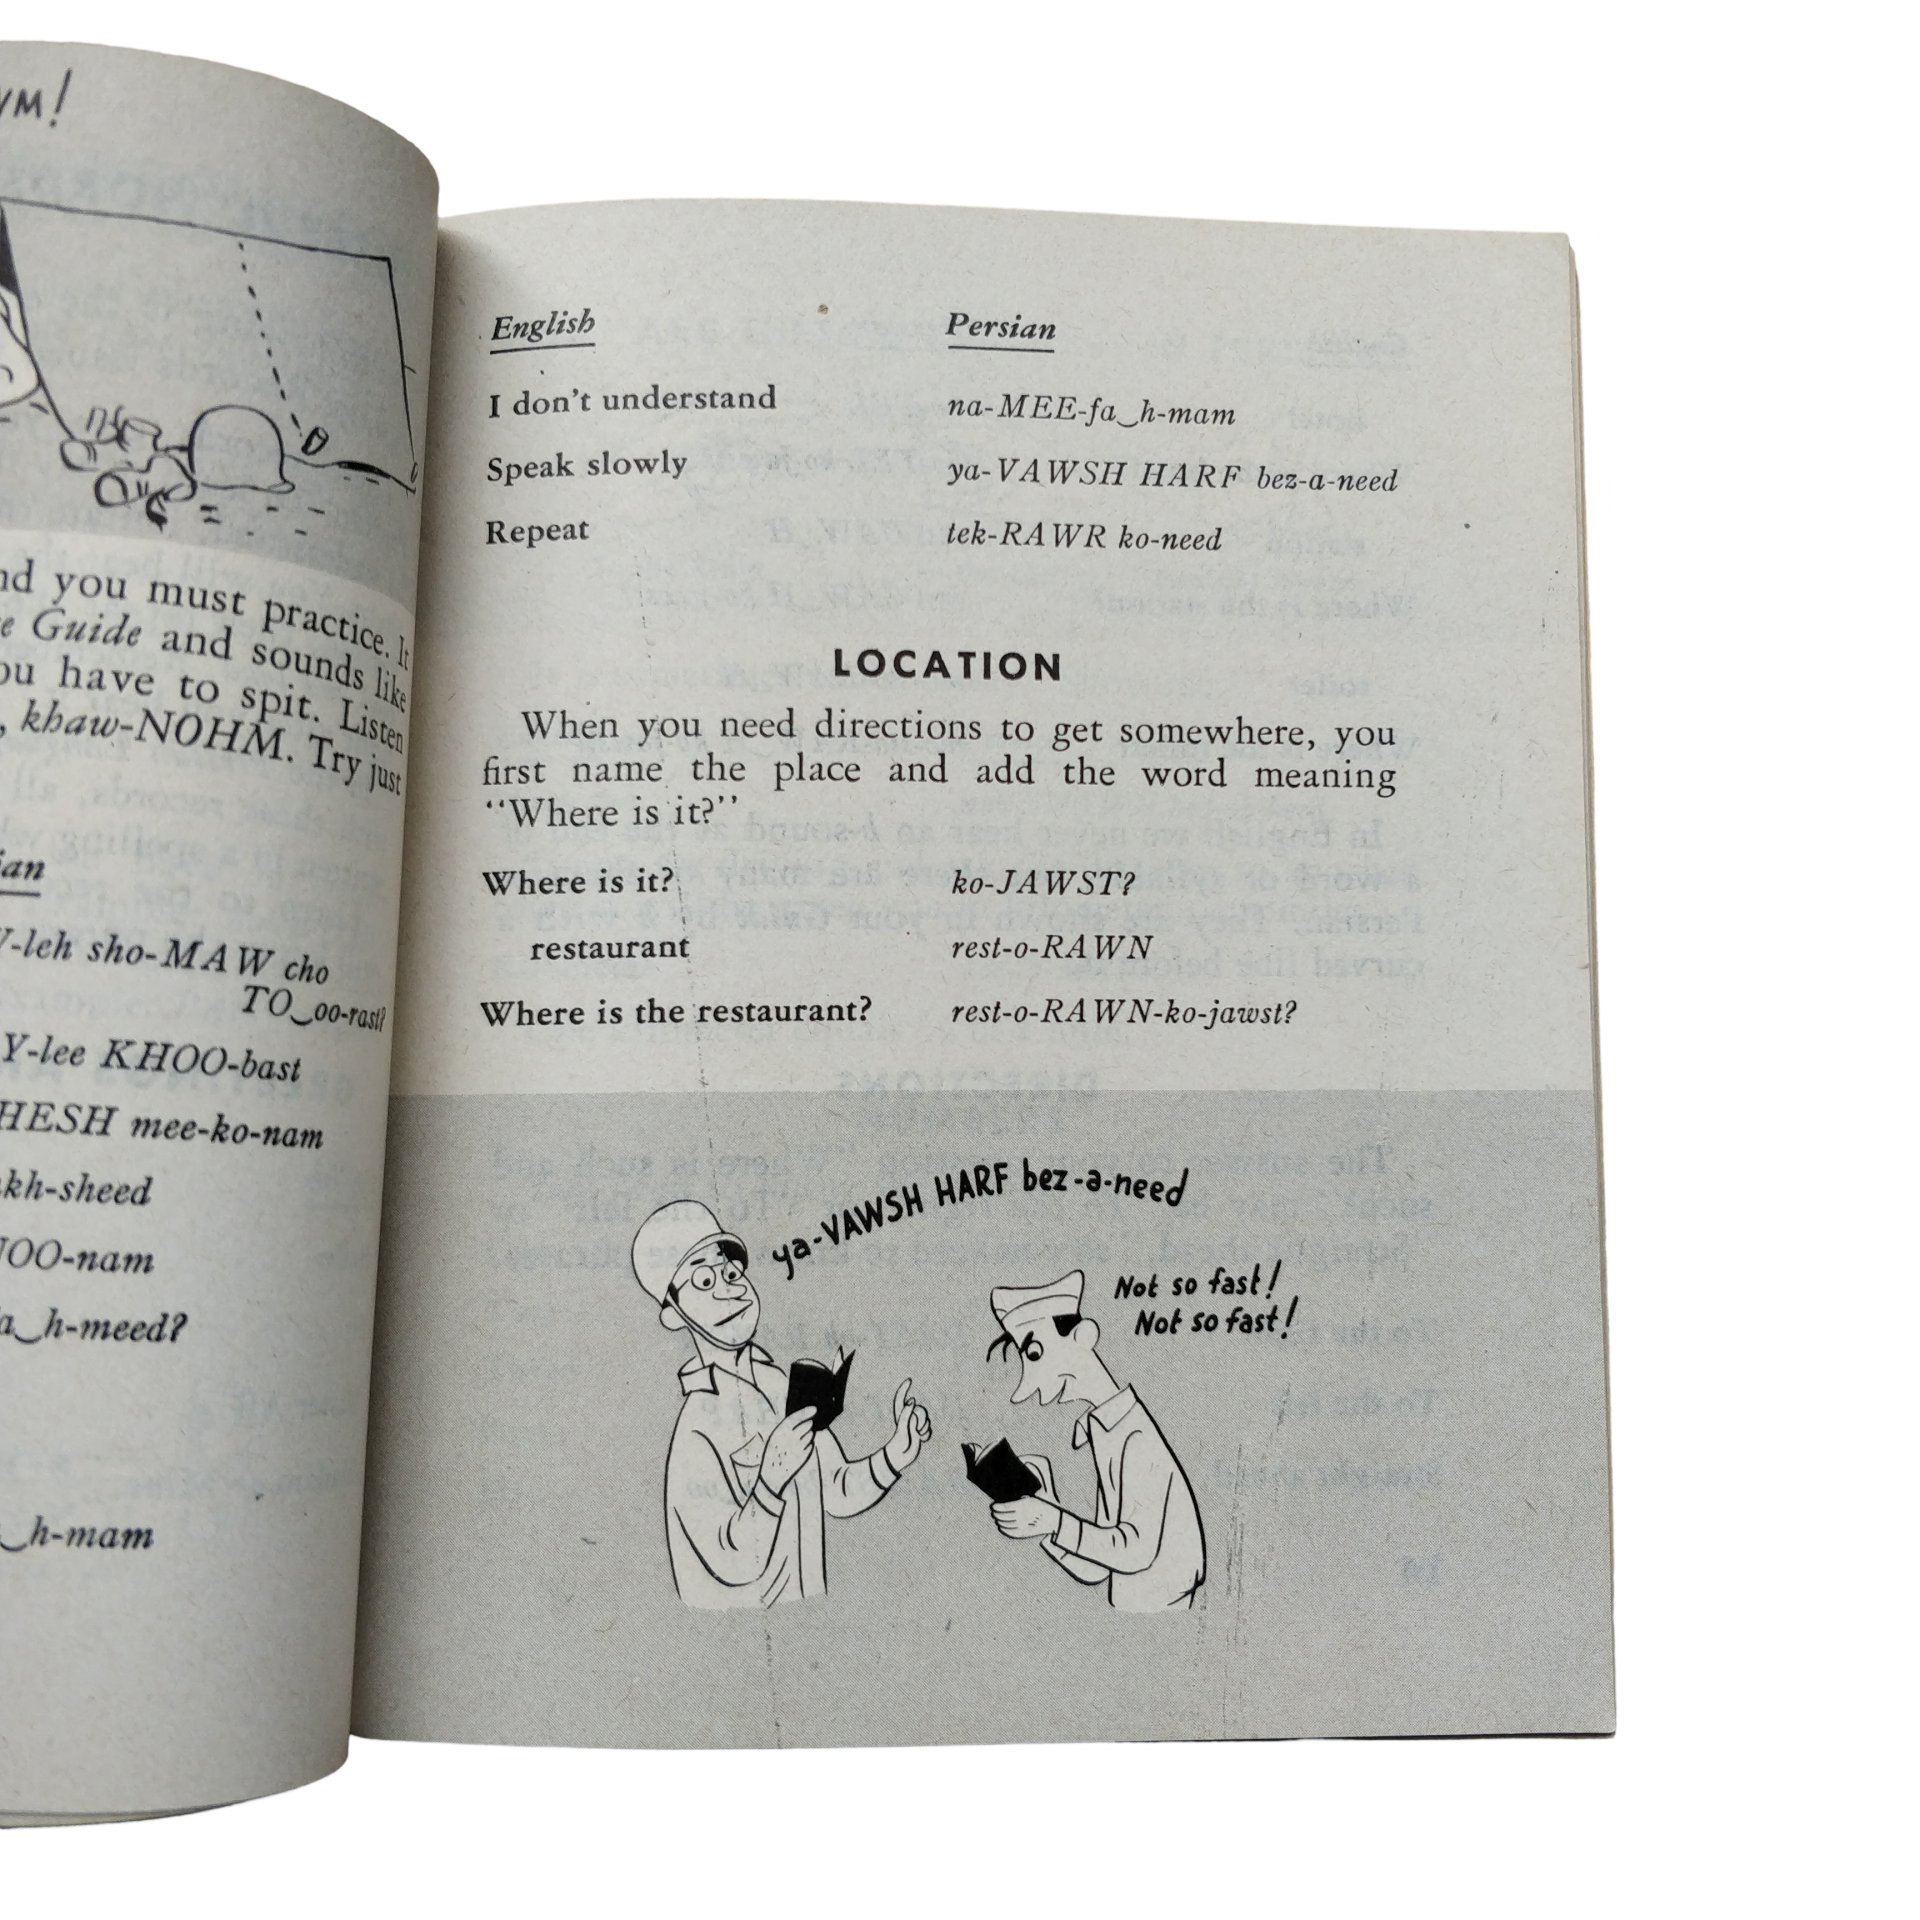 YM!
nd you must practice. It
e Guide and sounds like
ou have to spit. Listen
, khaw-NOHM. Try just
ian
Y-leh sho-MAW cho
TO‿oo-rast?
Y-lee KHOO-bast
HESH mee-ko-nam
kh-sheed
OO-nam
a‿h-meed?
‿h-mam
English Persian
I don't understand na-MEE-fa‿h-mam
Speak slowly ya-VAWSH HARF bez-a-need
Repeat tek-RAWR ko-need
LOCATION
When you need directions to get somewhere, you
first name the place and add the word meaning
"Where is it?"
Where is it? ko-JAWST?
restaurant rest-o-RAWN
Where is the restaurant? rest-o-RAWN-ko-jawst?
ya-VAWSH HARF bez-a-need
Not so fast!
Not so fast!